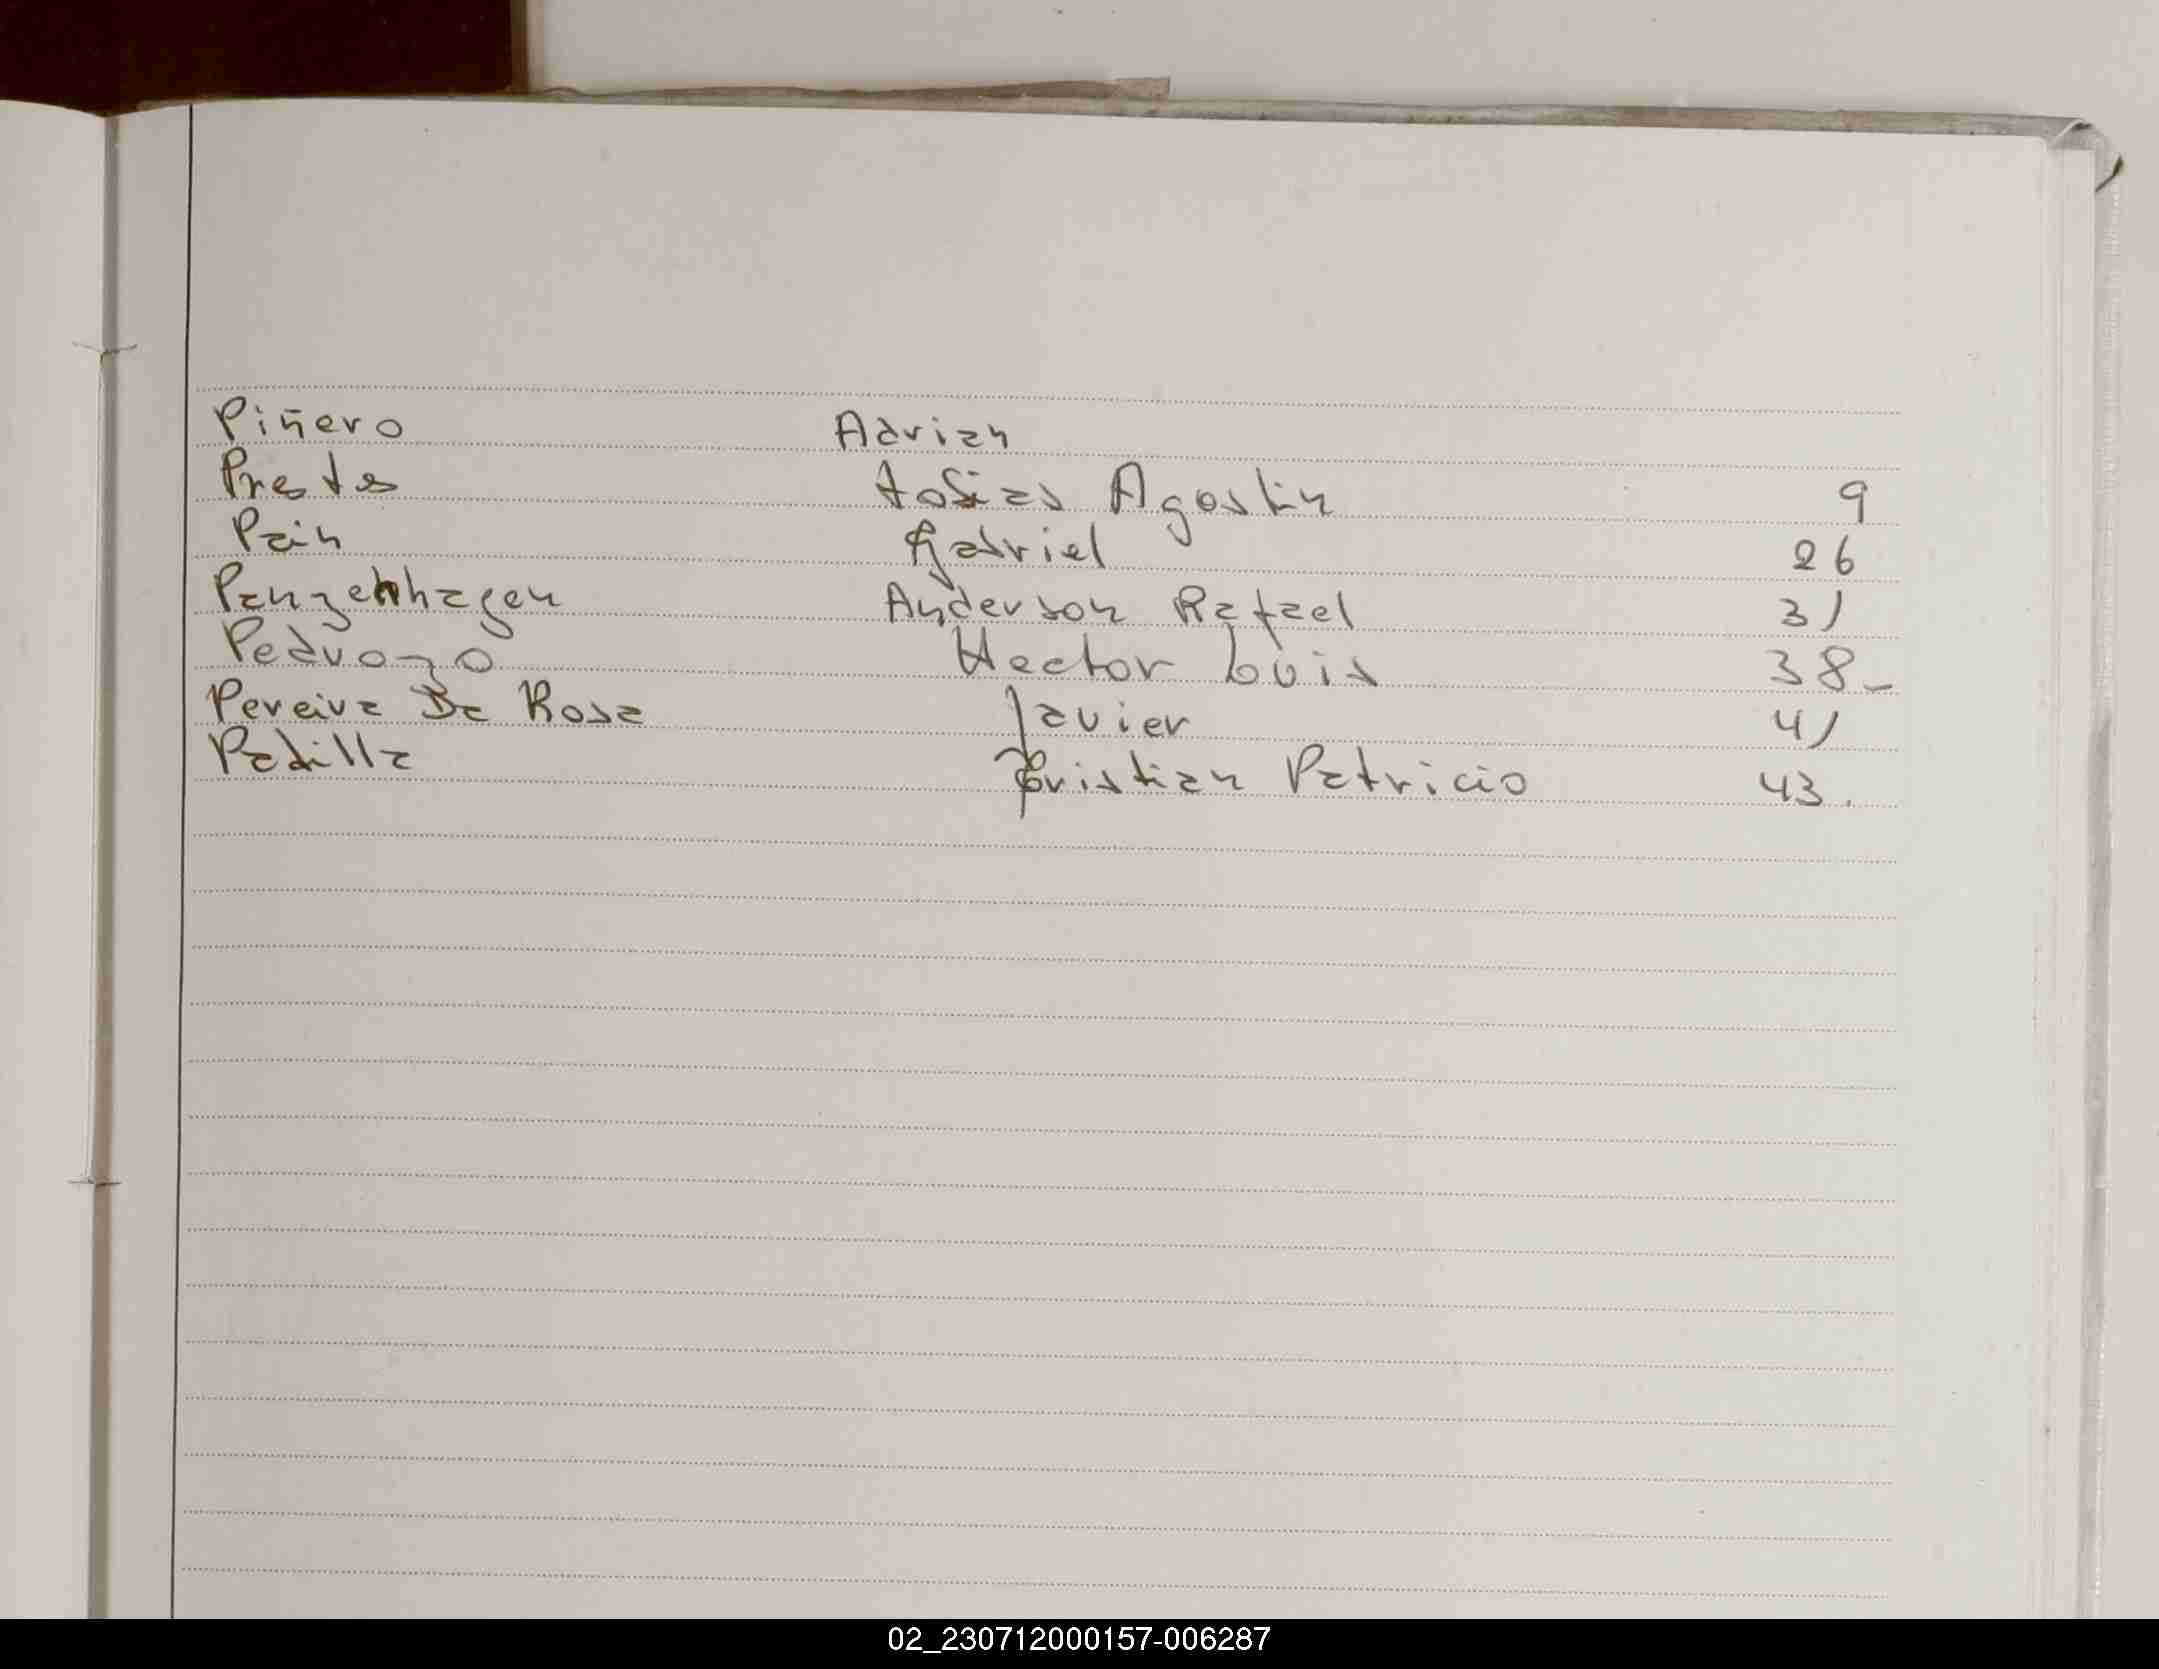 Piñero Adrian
Prestes Tobias Agostin 9
Pain Gabriel 26
Panzenhagen Anderson Rafael 31
Pedrozo Hector Luis 38-
Pereira Da Rosa Javier 41
Padilla Cristian Patricio 43.
02_230712000157-006287